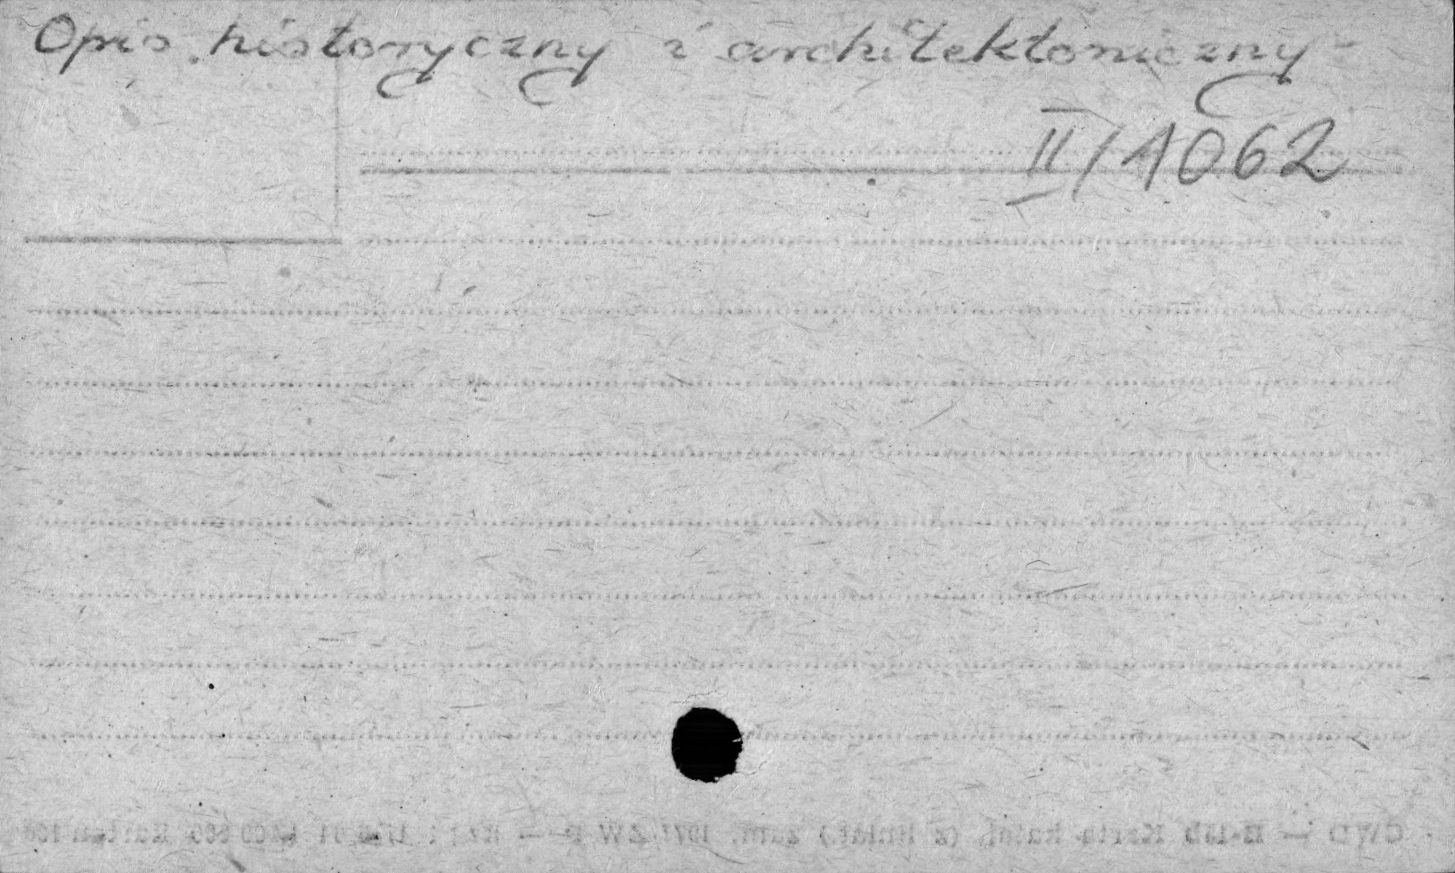 Opis historyczny i architektoniczny
II/1062